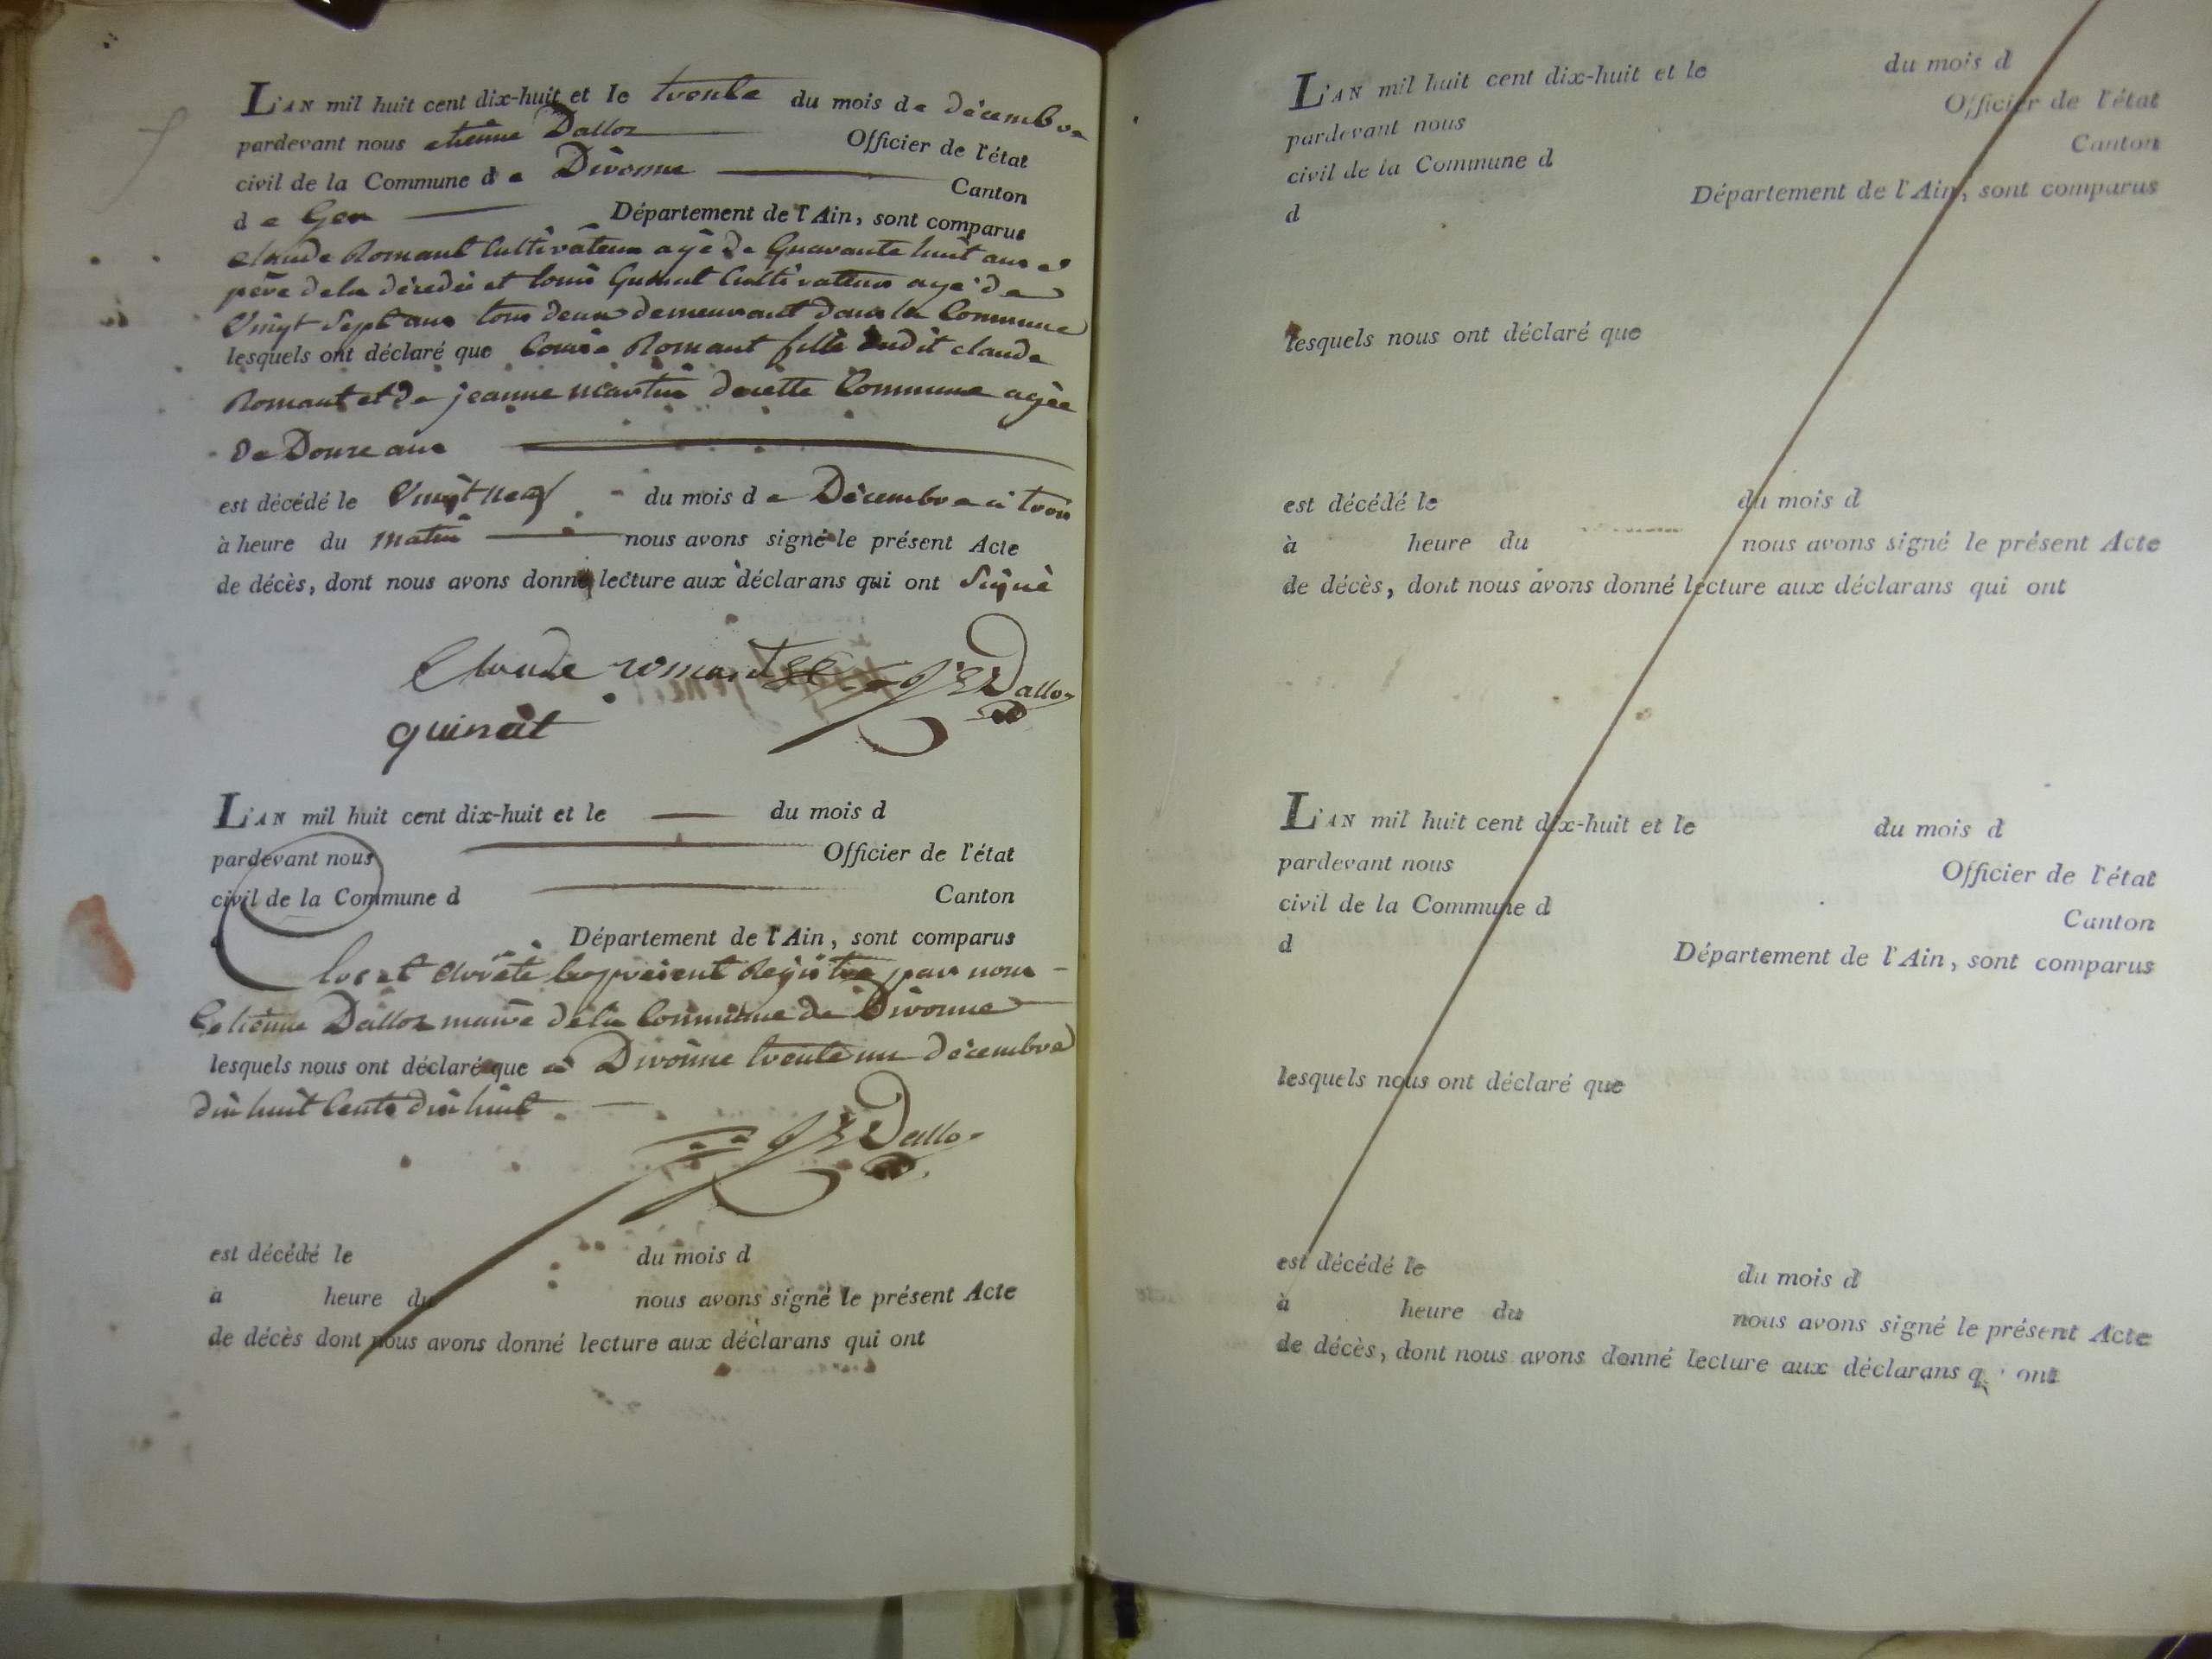 L'AN mil huit cent dix-huit et le trente du mois de décembre
pardevant nous etienne Dalloz Officier de l'état
civil de la Commune de Divonne Canton
de Gex Département de l'Ain, sont comparus
claude Romant Cultivateur agé de Quarante huit ans
père de la décedée et louis Guinat Cultivateur agé de
Vingt Sept ans tous deux demeurant dans la Commune
lesquels ont déclaré que Louise Romant fille dudit claude
Romant et de jeanne martin de cette Commune agée
de Douze ans
est décédé le Vingt neuf du mois de Décembre à trois
à heure du matin nous avons signé le présent Acte
de décès, dont nous avons donné lecture aux déclarans qui ont Signé
Claude romant Dalloz
guinat
L'AN mil huit cent dix-huit et le du mois d
pardevant nous Officier de l'état
civil de la Commune d Canton
Département de l'Ain, sont comparus
Clos et Arrêté le présent Registre par nous
Etienne Dalloz maire de la Commune de Divonne
lesquels nous ont déclaré que à Divonne trente un décembre
dix huit Cents dix huit
Dalloz
est décédé le du mois d
à heure du nous avons signé le présent Acte
de décès dont nous avons donné lecture aux déclarans qui ont
L'AN mil huit cent dix-huit et le du mois d
pardevant nous Officier de l'état
civil de la Commune d Canton
d Département de l'Ain, sont comparus
lesquels nous ont déclaré que
est décédé le du mois d
à heure du nous avons signé le présent Acte
de décès, dont nous avons donné lecture aux déclarans qui ont
L'AN mil huit cent dix-huit et le du mois d
pardevant nous Officier de l'état
civil de la Commune d Canton
d Département de l'Ain, sont comparus
lesquels nous ont déclaré que
est décédé le du mois d
à heure du nous avons signé le présent Acte
de décès, dont nous avons donné lecture aux déclarans q ont